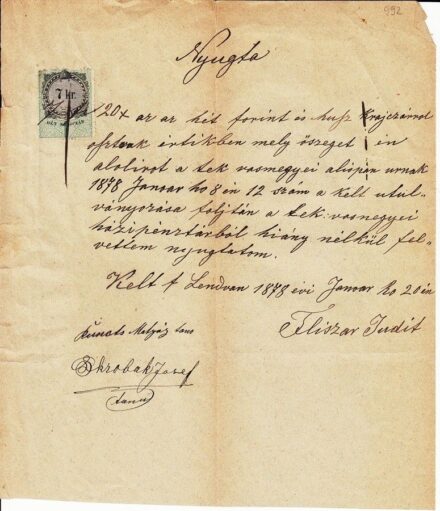 992
Nyugta
7 kr.
120x az az hét forint és husz Krajczárrol
osztrák értékben mely öszeget én
alolirot a tek vasmegyei alispán urnak
1878 Januar hó 8 én 12 szám a kelt utul-
ványozása foljtán a tek: vasmegyei
házipénztárból hiány nélkül fel-
vettem nyugtatom.
Kelt f Lendvan 1878 évi Januar hó 20 én
Fliszar Judit
Mátyás tanu
Skrobak Josef
tanu